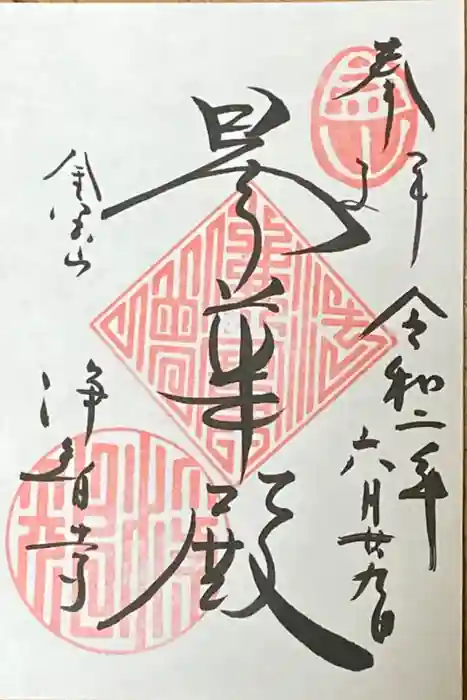 奉拝 令和二年
六月廿九日
曇華殿
金宝山
浄智寺